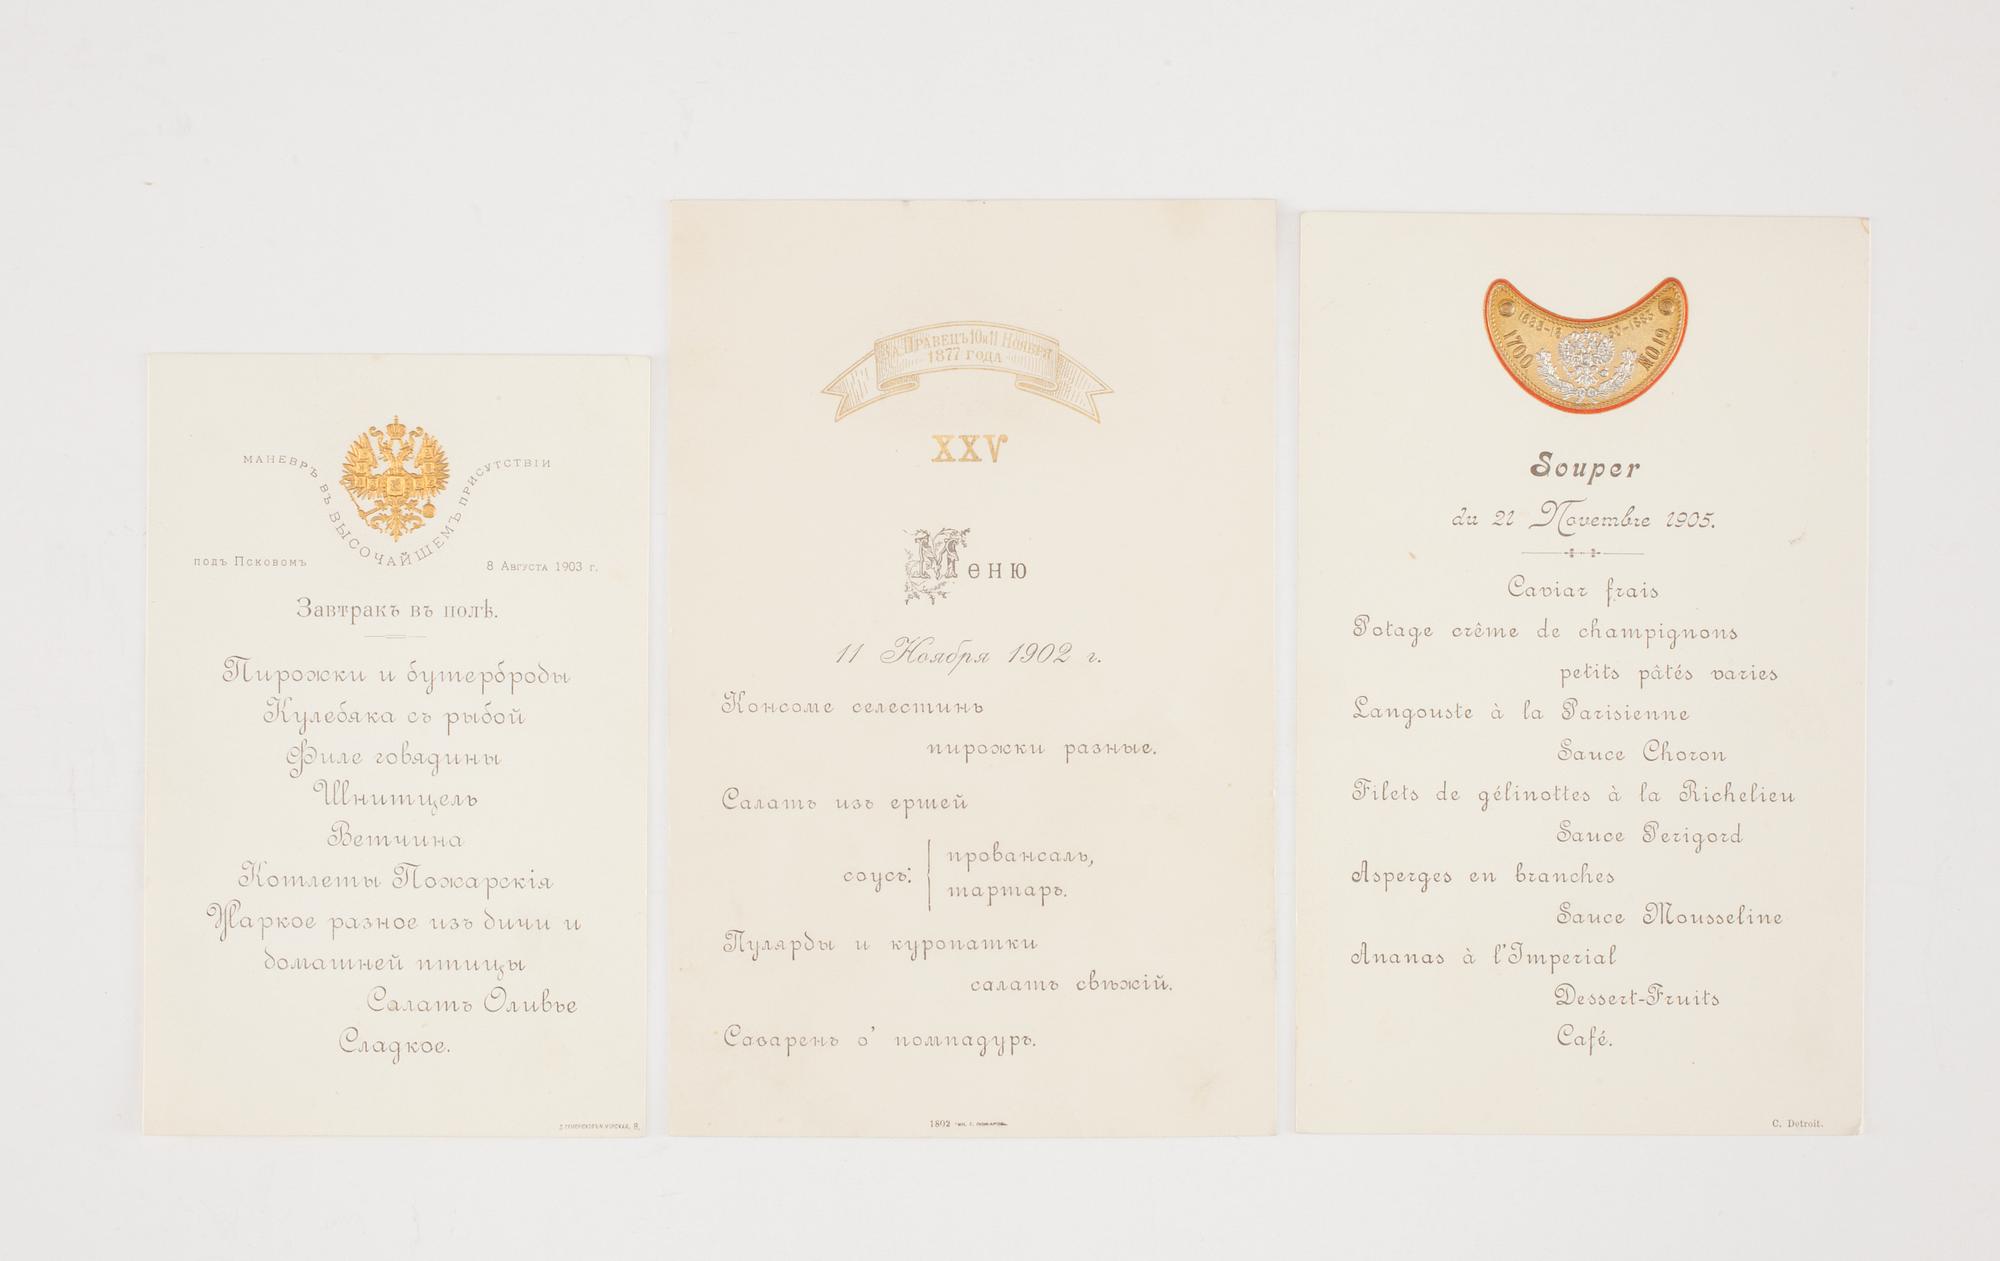 МАНЕВРЪ ВЪ ВЫСОЧАЙШЕМЪ ПРИСУТСТВІИ
подъ Псковомъ
8 Августа 1903 г.
Завтракъ въ полѣ.
Пирожки и бутерброды
Кулебяка съ рыбой
Филе говядины
Шнитцель
Ветчина
Котлеты Пожарскія
Жаркое разное изъ дичи и
домашней птицы
Салатъ Оливье
Сладкое.
За Правецъ 10 и 11 Ноября
1877 года
XXV
Меню
11 Ноября 1902 г.
Консоме селестинъ
пирожки разные.
Салатъ изъ ершей
соусъ:
провансаль,
тартаръ.
Пулярды и куропатки
салатъ свѣжій.
Саварень о' помпадуръ.
1802
1683-1850-1883
1700 NO.19
Souper
du 21 Novembre 1905.
Caviar frais
Potage crême de champignons
petits pâtés varies
Langouste à la Parisienne
Sauce Choron
Filets de gélinottes à la Richelieu
Sauce Perigord
Asperges en branches
Sauce Mousseline
Ananas à l'Imperial
Dessert-Fruits
Café.
C. Detroit.